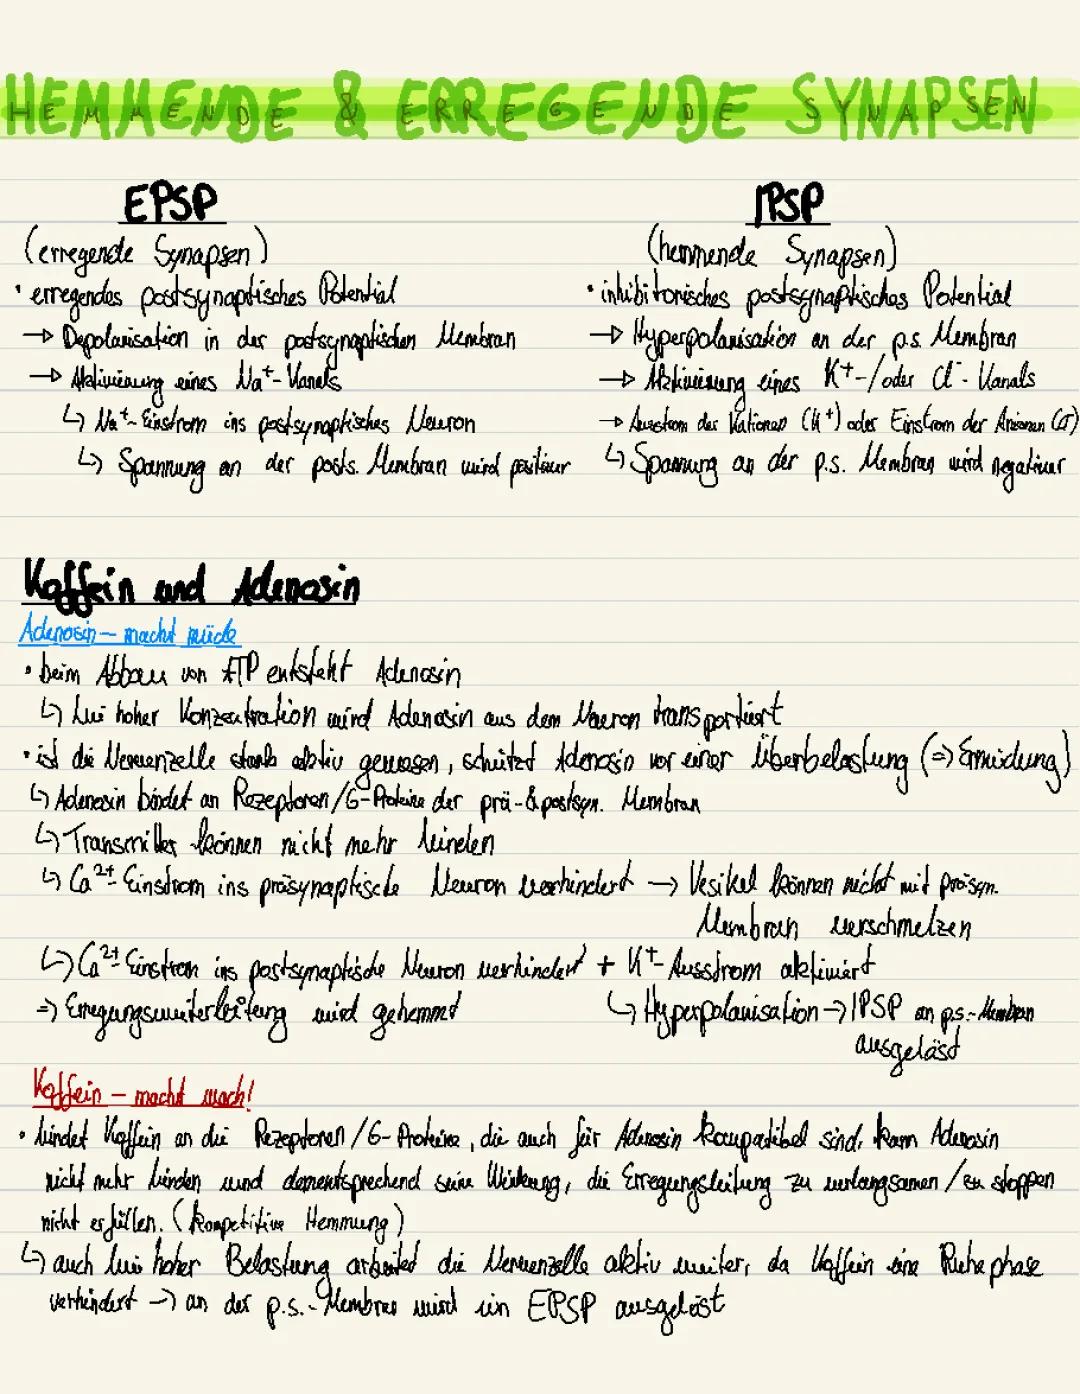 HEMMENDE & ERREGENDE SYNAPSEN
EPSP
(erregende Synapsen)
• erregendes postsynaptisches Potential
→ Depolarisation in der postsynaptischen Membran
→ Aktivierung eines Na⁺-Kanals
↳ Na⁺-Einstrom ins postsynaptisches Neuron
↳ Spannung an der posts. Membran wird positiver
IPSP
(hemmende Synapsen)
• inhibitorisches postsynaptisches Potential
→ Hyperpolarisation an der p.s. Membran
→ Aktivierung eines K⁺-/oder Cl⁻-Kanals
→ Ausstrom der Kationen (K⁺) oder Einstrom der Anionen (Cl⁻)
↳ Spannung an der p.s. Membran wird negativer
Koffein und Adenosin
Adenosin – macht müde
• beim Abbau von ATP entsteht Adenosin
↳ bei hoher Konzentration wird Adenosin aus dem Neuron transportiert
• ist die Nervenzelle stark aktiv gewesen, schützt Adenosin vor einer Überbelastung (⇒ Ermüdung)
↳ Adenosin bindet an Rezeptoren/G-Proteine der prä-&postsyn. Membran
↳ Transmitter können nicht mehr binden
↳ Ca²⁺-Einstrom ins präsynaptische Neuron verhindert → Vesikel können nicht mit präsyn.
Membran verschmelzen
↳ Ca²⁺-Einstrom ins postsynaptische Neuron verhindert + K⁺-Ausstrom aktiviert
⇒ Erregungsweiterleitung wird gehemmt ↳ Hyperpolarisation → IPSP an p.s.-Membran
ausgelöst
Koffein – macht wach!
• bindet Koffein an die Rezeptoren/G-Proteine, die auch für Adenosin kompatibel sind, kann Adenosin
nicht mehr binden und dementsprechend seine Wirkung, die Erregungsleitung zu verlangsamen/zu stoppen
nicht erfüllen. (kompetitive Hemmung)
↳ auch bei hoher Belastung arbeitet die Nervenzelle aktiv weiter, da Koffein eine Ruhephase
verhindert → an der p.s.-Membran wird ein EPSP ausgelöst